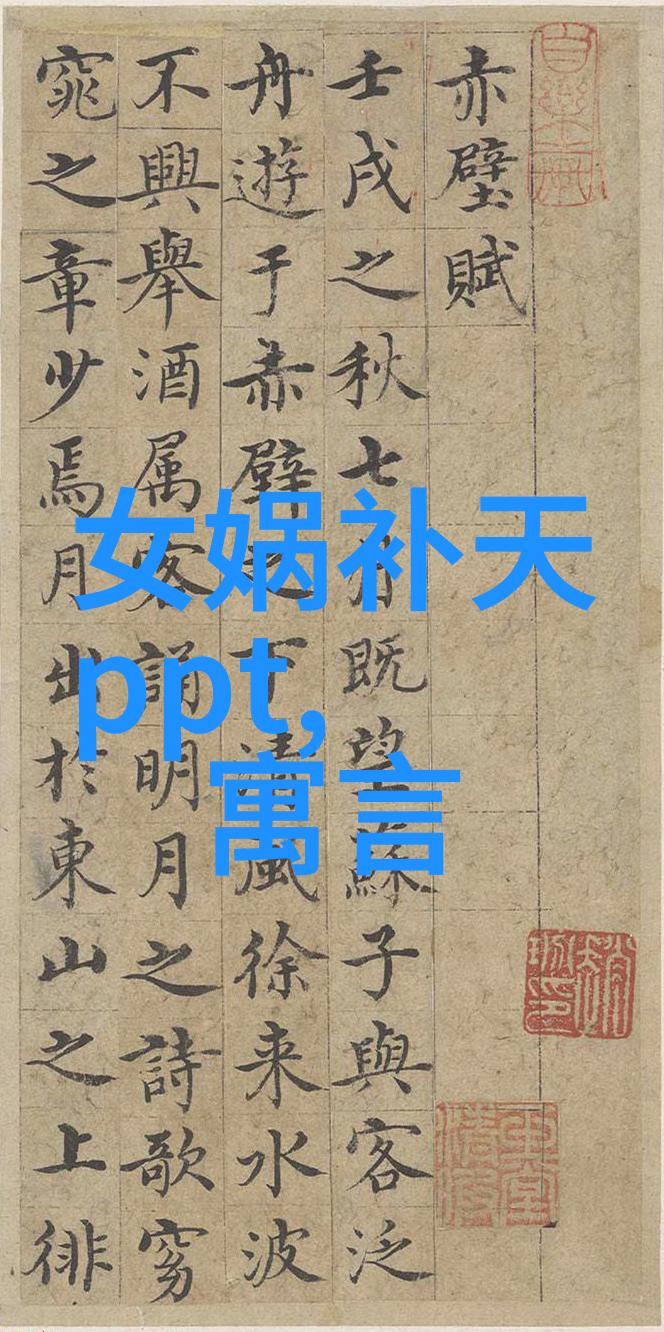 赤壁賦
壬戌之秋七月既望蘇子與客泛
舟遊于赤壁之下清風徐来水波
不興舉酒属客誦明月之詩歌窈
窕之章少焉月出於東山之上徘
女娲补天
ppt,
寓言